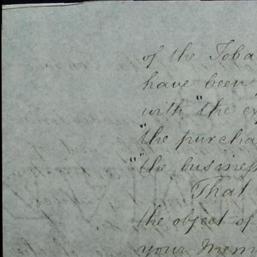 of the Toba
have been
with "the ex
"the purcha
"the business
That
the object of
your Mem